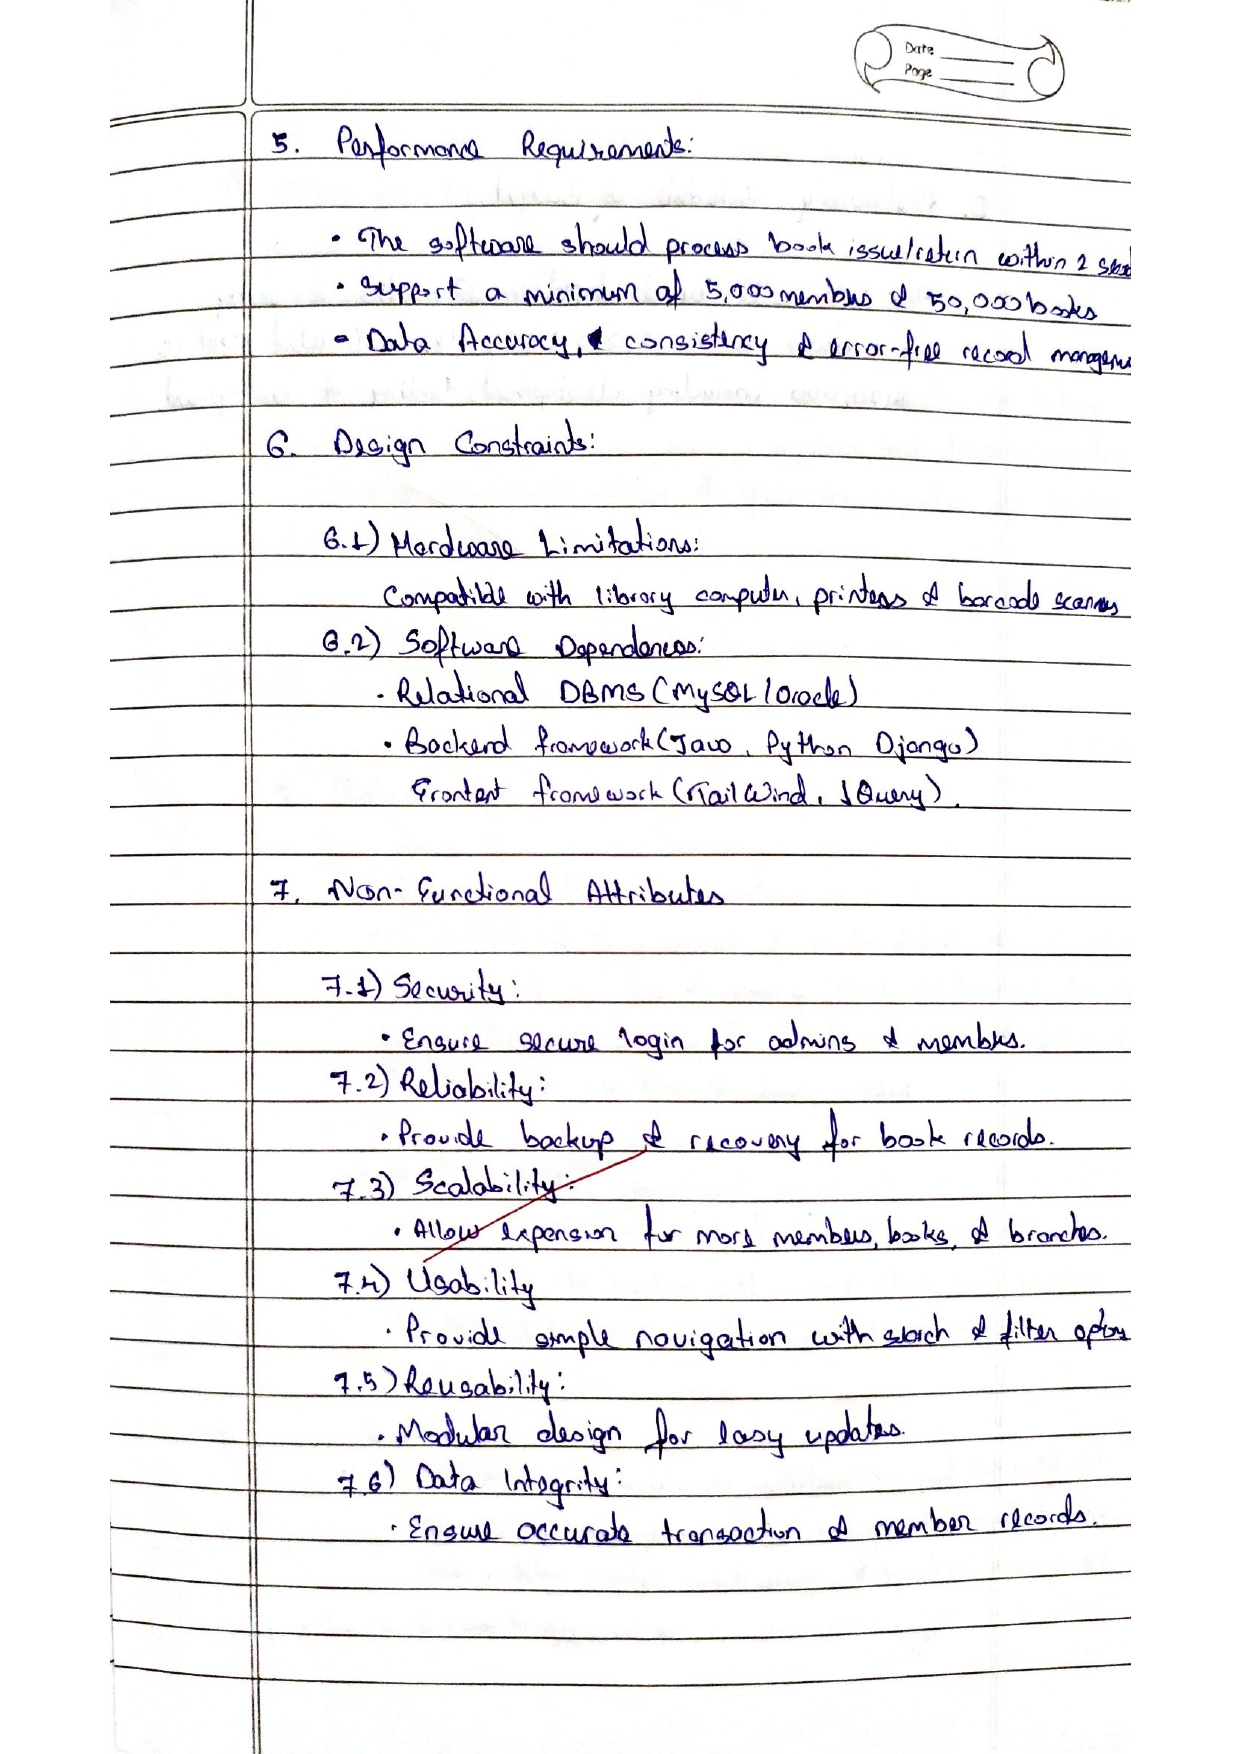 Date
Page
5. Performance Requirements:
• The software should process book issue/return within 2
• Support a minimum of 5,000 members & 50,000 books
• Data Accuracy, consistency & error-free record
6. Design Constraints:
6.1) Hardware Limitations:
Compatible with library computer, printers & barcode scanners
6.2) Software Dependences:
• Relational DBMS (MySQL / Oracle)
• Backend framework (Java, Python Django)
framework (TailWind, JQuery).
7. Non-Functional Attributes
7.1) Security:
• Ensure secure login for admins & members.
7.2) Reliability:
• Provide backup & recovery for book records.
7.3) Scalability:
• Allow expension for more members, books, & branches.
7.4) Usability
• Provide simple navigation with search & filter
7.5) Reusability:
• Modular design for easy updates.
7.6) Data Integrity:
• Ensure accurate transaction & member records.